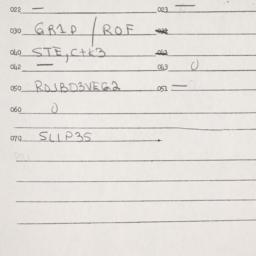 022 — 023 —
030 GR1D / ROF 032
040 STE, C+K3 042
062 — 063 0
050 RDJBD3VEG2 051 —
060 0
070 SLIP35